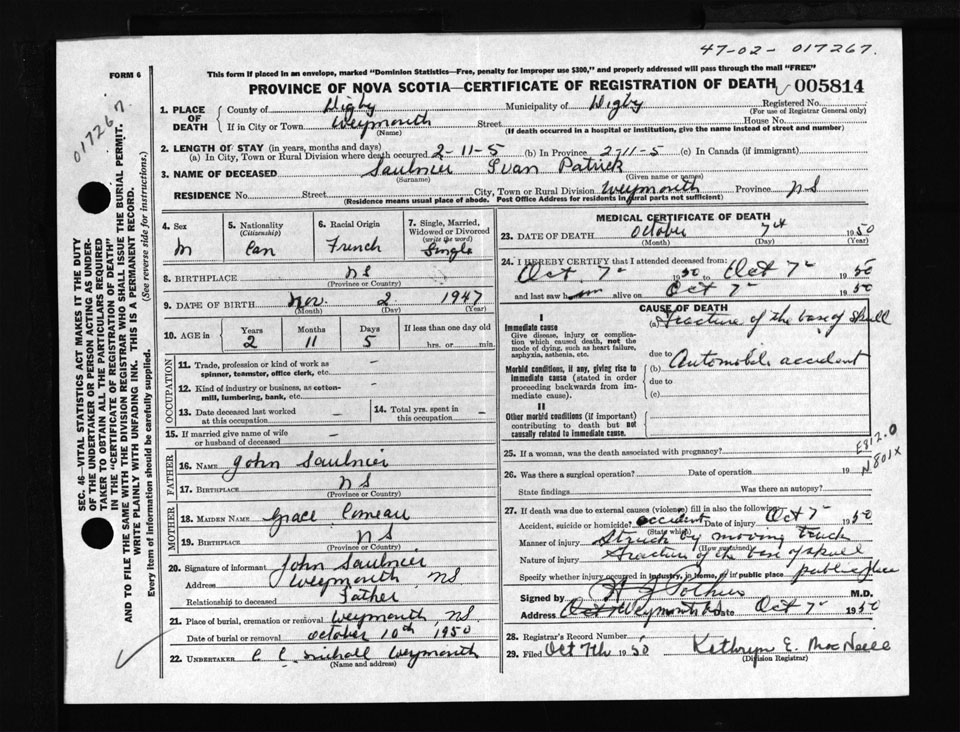 47-02- 017267.
FORM 6
This form if placed in an envelope, marked "Dominion Statistics—Free, penalty for improper use $300," and properly addressed will pass through the mail "FREE"
PROVINCE OF NOVA SCOTIA—CERTIFICATE OF REGISTRATION OF DEATH 005814
1. PLACE OF DEATH
County of Digby Municipality of Digby Registered No.
(For use of Registrar General only)
If in City or Town Weymouth Street House No.
(Name) (If death occurred in a hospital or institution, give the name instead of street and number)
2. LENGTH OF STAY (in years, months and days)
(a) In City, Town or Rural Division where death occurred 2-11-5 (b) In Province 2-11-5 (c) In Canada (if immigrant)
3. NAME OF DECEASED Saulnier Ivan Patrick
(Surname) (Given name or names)
RESIDENCE No. Street City, Town or Rural Division Weymouth Province NS
(Residence means usual place of abode. Post Office Address for residents in rural parts not sufficient)
4. Sex M
5. Nationality (Citizenship) Can
6. Racial Origin French
7. Single, Married, Widowed or Divorced (write the word) Single
8. BIRTHPLACE NS
(Province or Country)
9. DATE OF BIRTH Nov. 2 1947
(Month) (Day) (Year)
10. AGE in Years Months Days If less than one day old
2 11 5 hrs. or min.
OCCUPATION
11. Trade, profession or kind of work as spinner, teamster, office clerk, etc. -
12. Kind of industry or business, as cotton-mill, lumbering, bank, etc. -
13. Date deceased last worked at this occupation -
14. Total yrs. spent in this occupation -
15. If married give name of wife or husband of deceased -
FATHER
16. NAME John Saulnier
17. BIRTHPLACE NS
(Province or Country)
MOTHER
18. MAIDEN NAME Grace Comeau
19. BIRTHPLACE NS
(Province or Country)
20. Signature of informant John Saulnier
Address Weymouth, NS
Relationship to deceased Father
21. Place of burial, cremation or removal Weymouth, NS
Date of burial or removal October 10th 1950
22. UNDERTAKER Weymouth
(Name and address)
MEDICAL CERTIFICATE OF DEATH
23. DATE OF DEATH October 7th 1950
(Month) (Day) (Year)
24. I HEREBY CERTIFY that I attended deceased from:
Oct 7 1950 to Oct 7 1950
and last saw him alive on Oct 7 1950
CAUSE OF DEATH
I
Immediate cause
Give disease, injury or complication which caused death, not the mode of dying, such as heart failure, asphyxia, asthenia, etc.
(a) Fracture of the base of skull
due to
Morbid conditions, if any, giving rise to immediate cause (stated in order proceeding backwards from immediate cause).
(b) Automobile accident
due to
(c)
II
Other morbid conditions (if important) contributing to death but not causally related to immediate cause.
25. If a woman, was the death associated with pregnancy? E812.0
26. Was there a surgical operation? Date of operation 19 N801X
State findings Was there an autopsy?
27. If death was due to external causes (violence) fill in also the following:
Accident, suicide or homicide? accident Date of injury Oct 7 1950
(State which)
Manner of injury Struck by moving truck
(How sustained)
Nature of injury Fracture of the base of skull
Specify whether injury occurred in industry, in home, or in public place public place
Signed by M.D.
Address Weymouth NS Date Oct 7 1950
28. Registrar's Record Number
29. Filed Oct 7th 1950 Kathryn E. MacNeill
(Division Registrar)
017267
SEC. 46—VITAL STATISTICS ACT MAKES IT THE DUTY
OF THE UNDERTAKER OR PERSON ACTING AS UNDER-
TAKER TO OBTAIN ALL THE PARTICULARS REQUIRED
IN THE "CERTIFICATE OF REGISTRATION OF DEATH"
AND TO FILE THE SAME WITH THE DIVISION REGISTRAR WHO SHALL ISSUE THE BURIAL PERMIT.
WRITE PLAINLY WITH UNFADING INK. THIS IS A PERMANENT RECORD.
Every item of information should be carefully supplied. (See reverse side for instructions.)